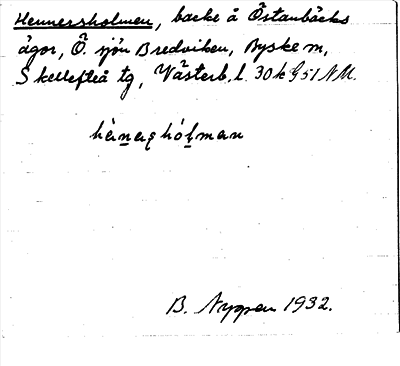 Hennersholmen, backe å Östanbäcks
ägor, Ö. sjön Bredviken, Byske sn,
Skellefteå tg, Västerb. l. 30 k G 51 NM.
B. Nyppen 1932.